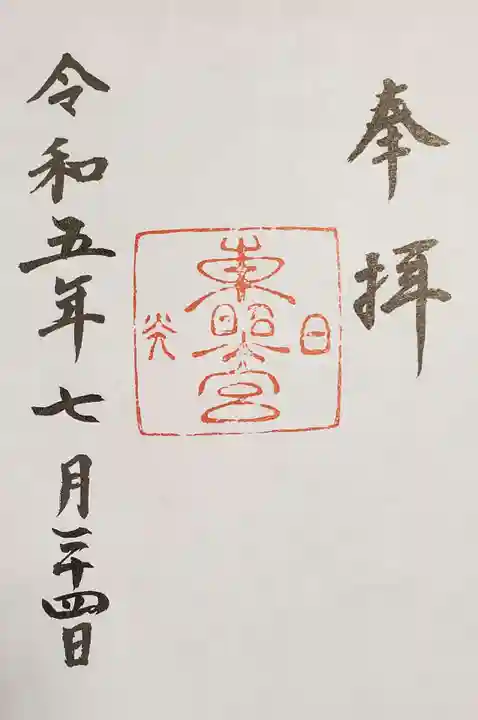 奉拝
日
東照宮
光
令和五年七月二十四日